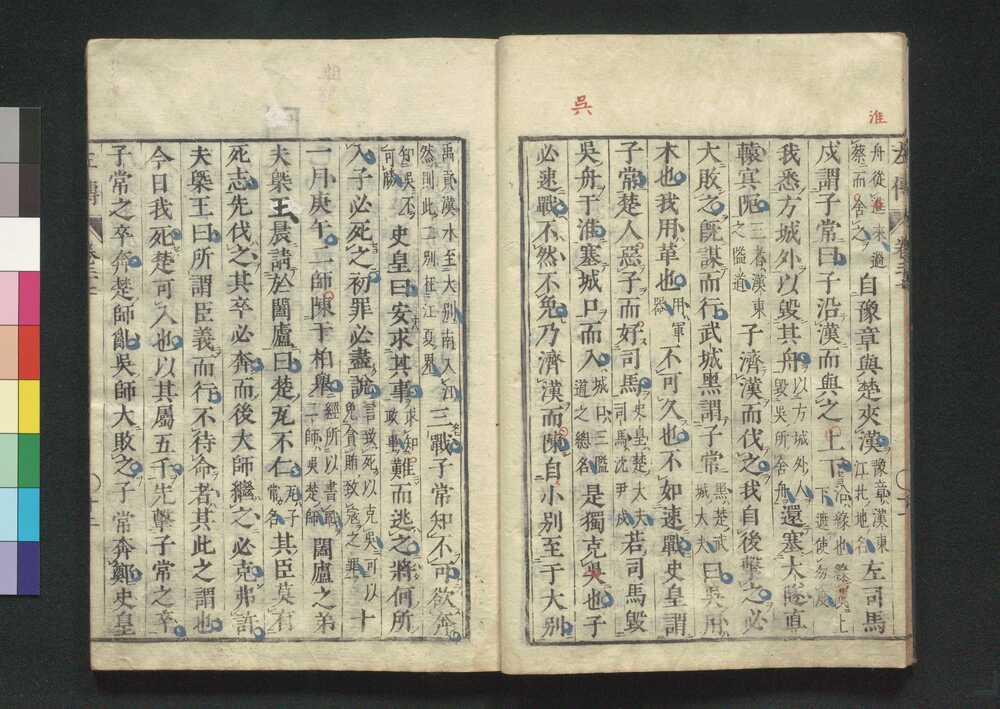 淮
吳
舟從淮來過蔡而舍之自豫章與楚夾漢豫章漢東江北地名左司馬
戌謂子常曰子沿漢而與之上下沿緣也緣漢上下遮使勿度
我悉方城外以毀其舟以方城外人毀吳所舍舟還塞大隧直
轅冥阨三者漢東之隘道子濟漢而伐之我自後擊之必
大敗之既謀而行武城黑謂子常黑楚武城大夫曰吳用
木也我用革也用軍器不可久也不如速戰史皇謂
子常楚人惡子而好司馬史皇楚大夫司馬沈尹戌若司馬毀
吳舟于淮塞城口而入城口三隘道之總名是獨克吳也子
必速戰不然不免乃濟漢而陳自小别至于大别
禹貢漢水至大别南入江然則此二别在江夏界三戰子常知不可欲奔
知吳不可勝史皇曰安求其事求知政事難而逃之將何所
入子必死之初罪必盡說言致死以克吳可以免貪賄致寇之罪十
一月庚午二師陳于柏舉經所以書戰二師吳楚師闔廬之弟
夫槩王晨請於闔廬曰楚瓦不仁瓦子常名其臣莫有
死志先伐之其卒必奔而後大師繼之必克弗許
夫槩王曰所謂臣義而行不待命者其此之謂也
今日我死楚可入也以其屬五千先擊子常之卒
子常之卒奔楚師亂吳師大敗之子常奔鄭史皇